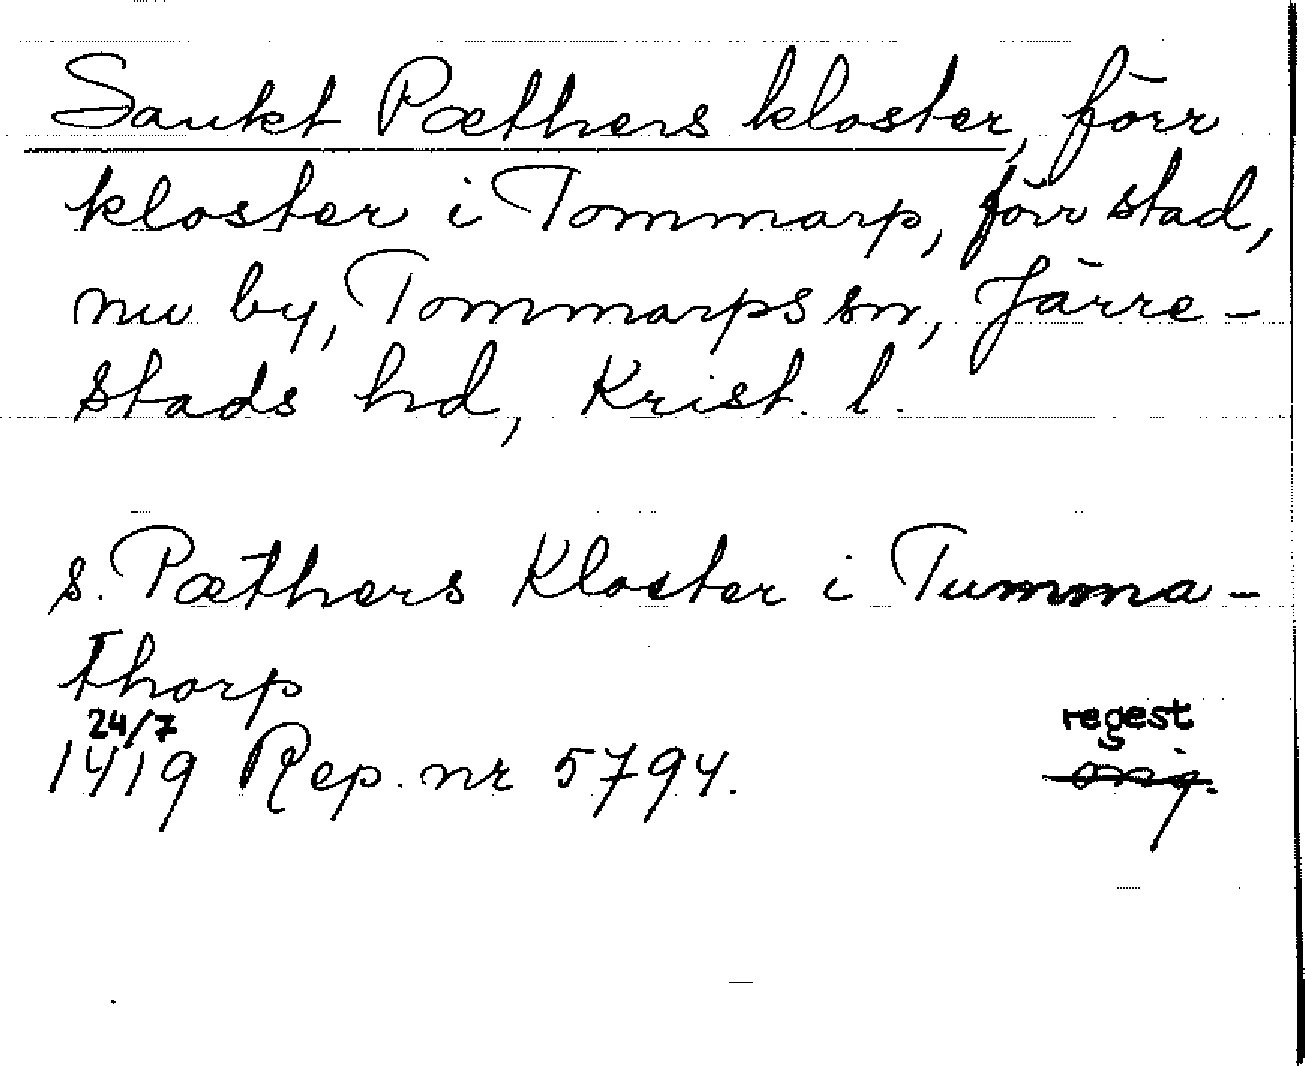 Sankt Pæthers kloster, förr
kloster i Tommarp, förr stad,
nu by, Tommarps sn, Järre-
stads hd, Krist. l.
s. Pæthers Kloster i Tumma-
thorp
24/7
regest
1419 Rep. nr 5794.
orig.